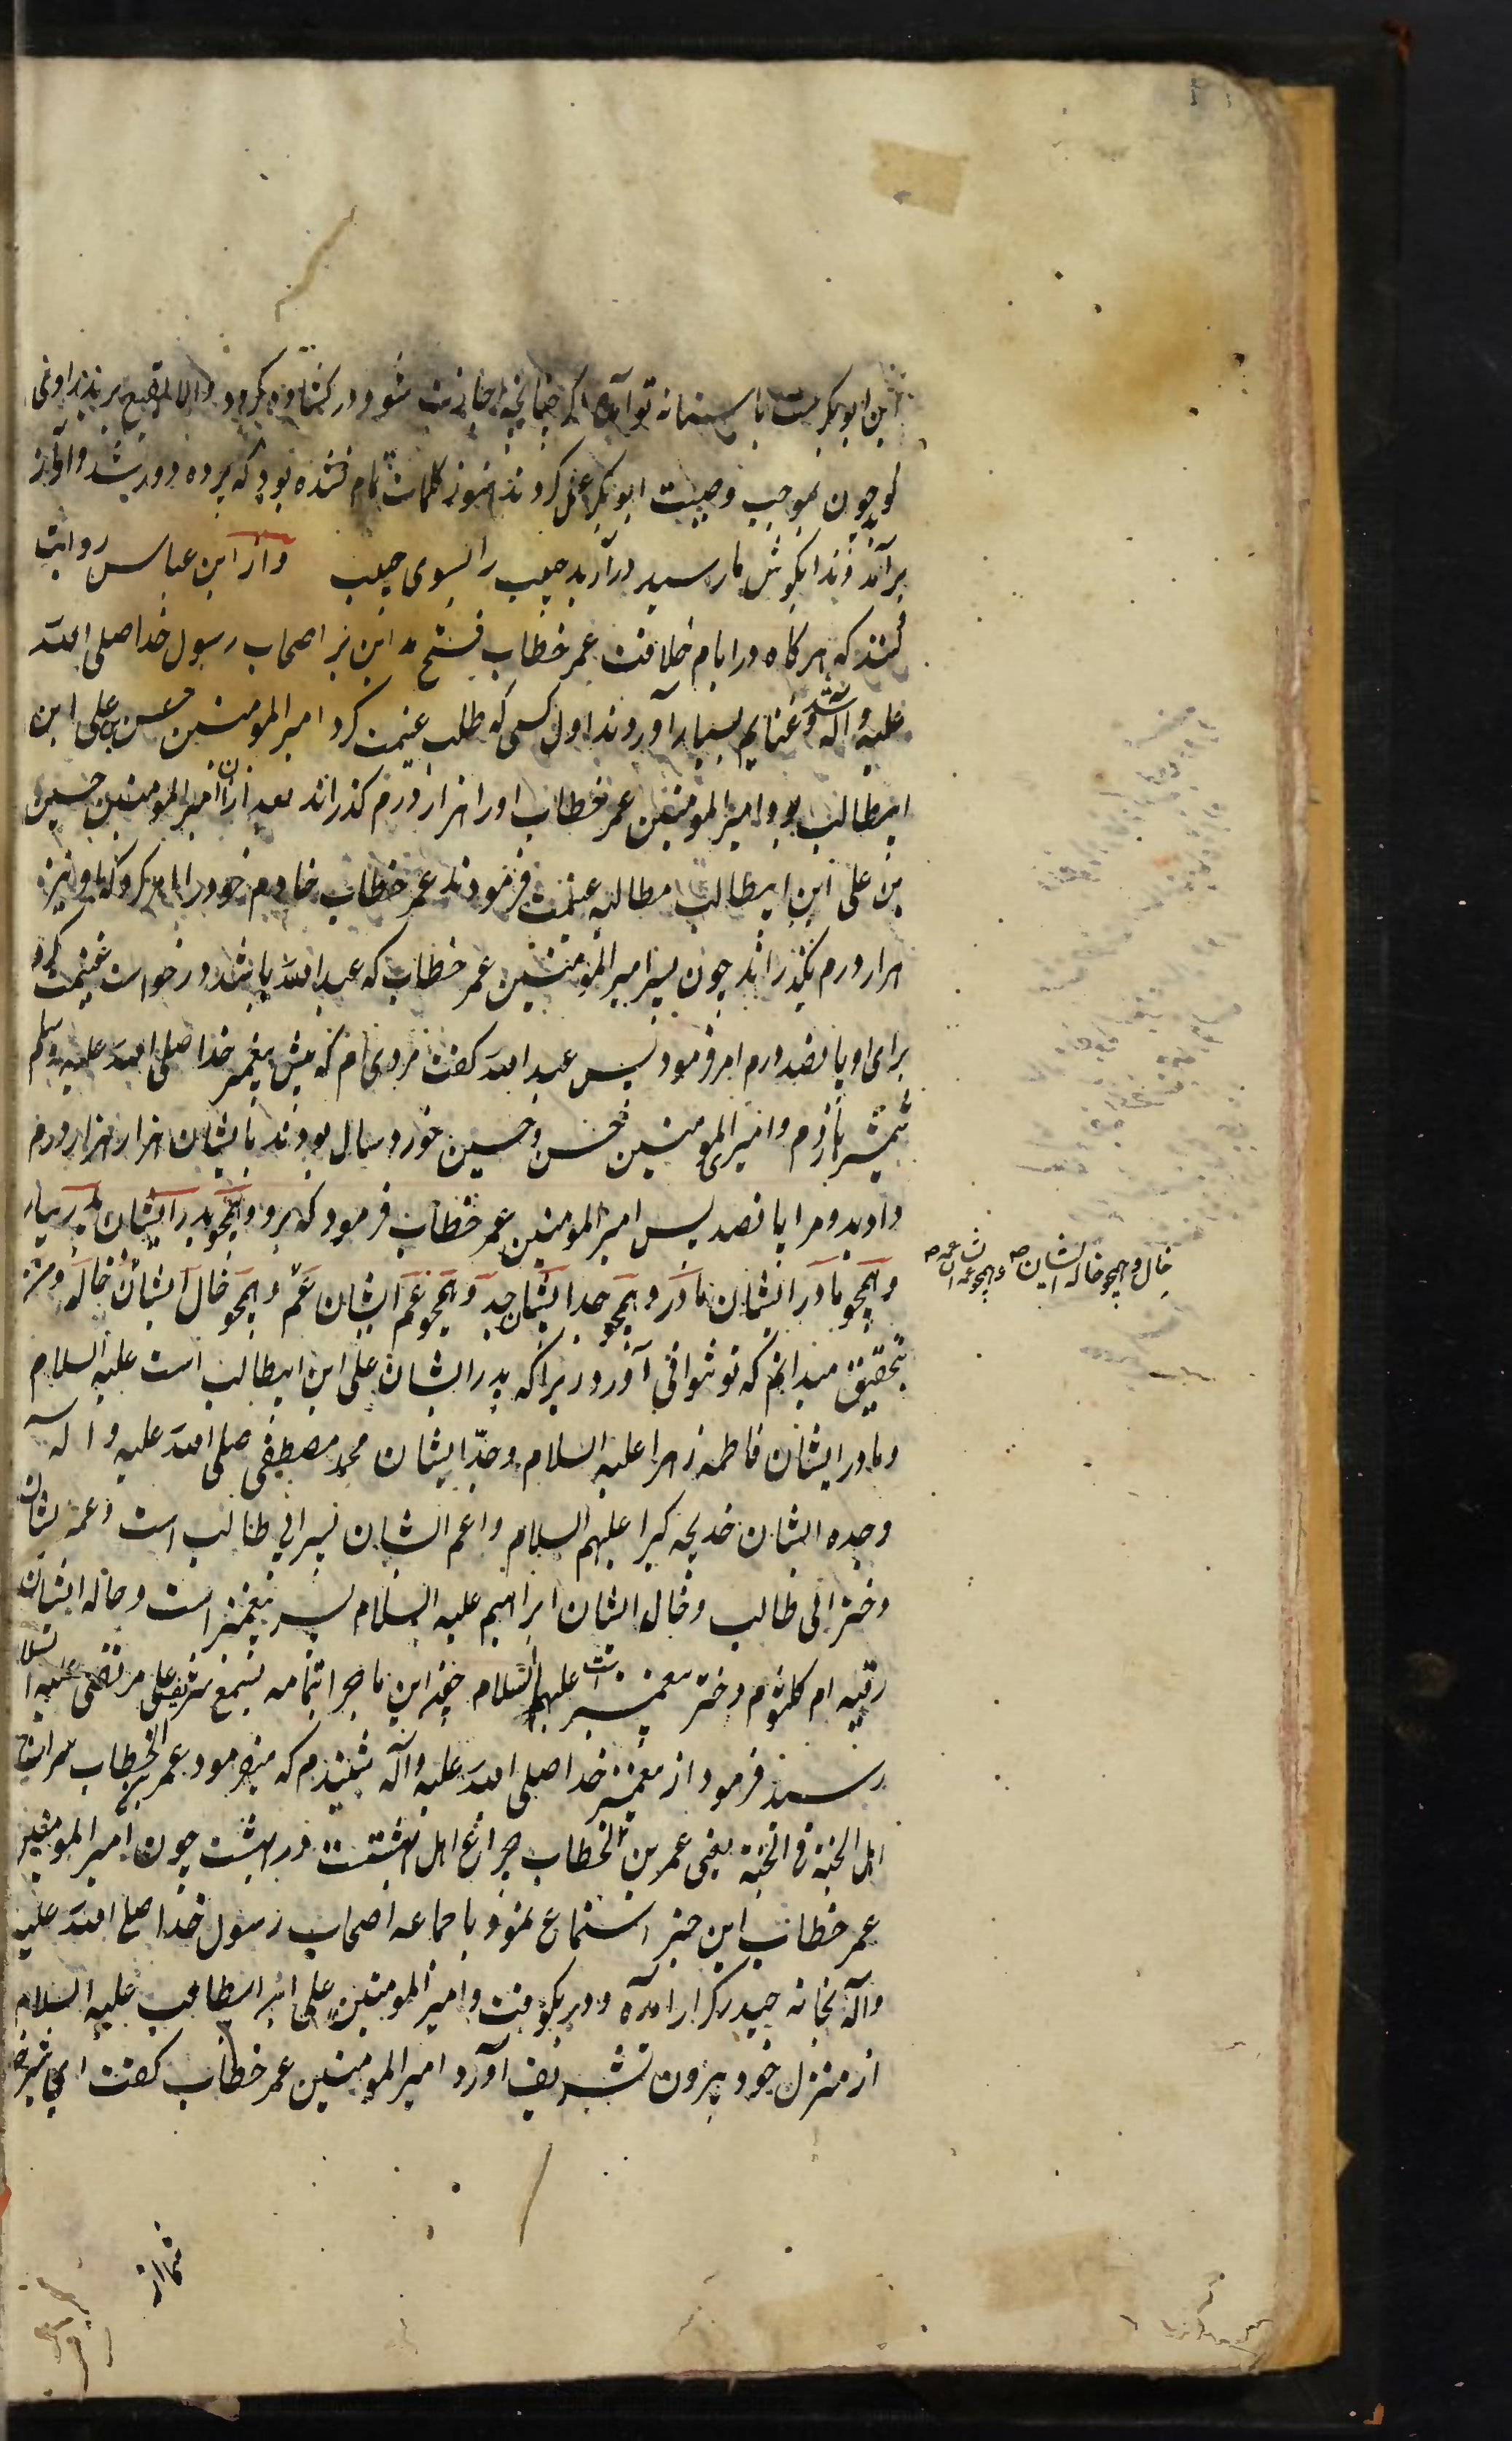 این ابوبکر است باستانه تو آمده اگر چنانچه اجازت شود در کشاده گردد والا ببقیع برند راوی
گوید چون بموجب وصیت ابوبکر عمل کردند هنوز کلمات تمام نشده بود که پرده دور شد و آواز
برآمد و ندا بگوش ما رسید در آرید حبیب را بسوی حبیب وازابن عباس روایت
کنند که هرگاه در ایام خلافت عمر خطاب فتح مداین بر اصحاب رسول خدا صلی الله
علیه وآله شد و غنایم بسیار آوردند اول کسی که طلب غنیمت کرد امیرالمومنین حسن بن علی ابن
ابیطالب بود امیرالمومنین عمر خطاب او را هزار درم گذراند بعد ازان امیرالمومنین حسین
بن علی ابن ابیطالب مطالبه غنیمت فرمودند عمر خطاب خادم خود را امر کرد که باو نیز
هزار درم بگذراند چون پسر امیرالمومنین عمر خطاب که عبدالله باشد درخواست غنیمت کرد
برای او پانصد درم امر فرمود پس عبدالله گفت مردی ام که پیش پیغمبر خدا صلی الله علیه وسلم
شمشیر نازدم و امیرالمومنین حسن و حسین خورد سال بودند بایشان هزار هزار درم
دادید و مرا پانصد پس امیرالمومنین عمر خطاب فرمود که برو و همچو پدر ایشان پدر بیار
و همچو مادر ایشان مادر و همچو جد ایشان جد و همچو عم ایشان عم و همچو خال ایشان خاله
خال و همچو خاله ایشان و همچو عمه ایشان عمه
بتحقیق میدانم که تو نتوانی آورد زیرا که پدر ایشان علی ابن ابیطالب است علیه السلام
و مادر ایشان فاطمه زهرا علیه السلام و جد ایشان محمد مصطفی صلی الله علیه و آله
و جده ایشان خدیجه کبرا علیهم السلام و اعم ایشان پسر ابی طالب است و عمه ایشان
دختر ابی طالب و خال ایشان ابراهیم علیه السلام پسر پیغمبر است و خاله ایشان
رقیه ام کلثوم دختر پیغمبر است علیهم السلام چون این ماجرا بتمامه بسمع شریف علی مرتضی علیه السلام
رسید فرمود از پیغمبر خدا صلی الله علیه وآله شنیدم که میفرمود عمر بن الخطاب سراج
اهل الجنة فی الجنة یعنی عمر بن الخطاب چراغ اهل بهشتست در بهشت چون امیرالمومنین
عمر خطاب این خبر استماع نمود با جماعه اصحاب رسول خدا صلی الله علیه
وآله بخانه حیدر کرار آمده در بکوفت و امیرالمومنین علی ابن ابیطالب علیه السلام
از منزل خود بیرون تشریف آورد امیرالمومنین عمر خطاب گفت ای
شما از